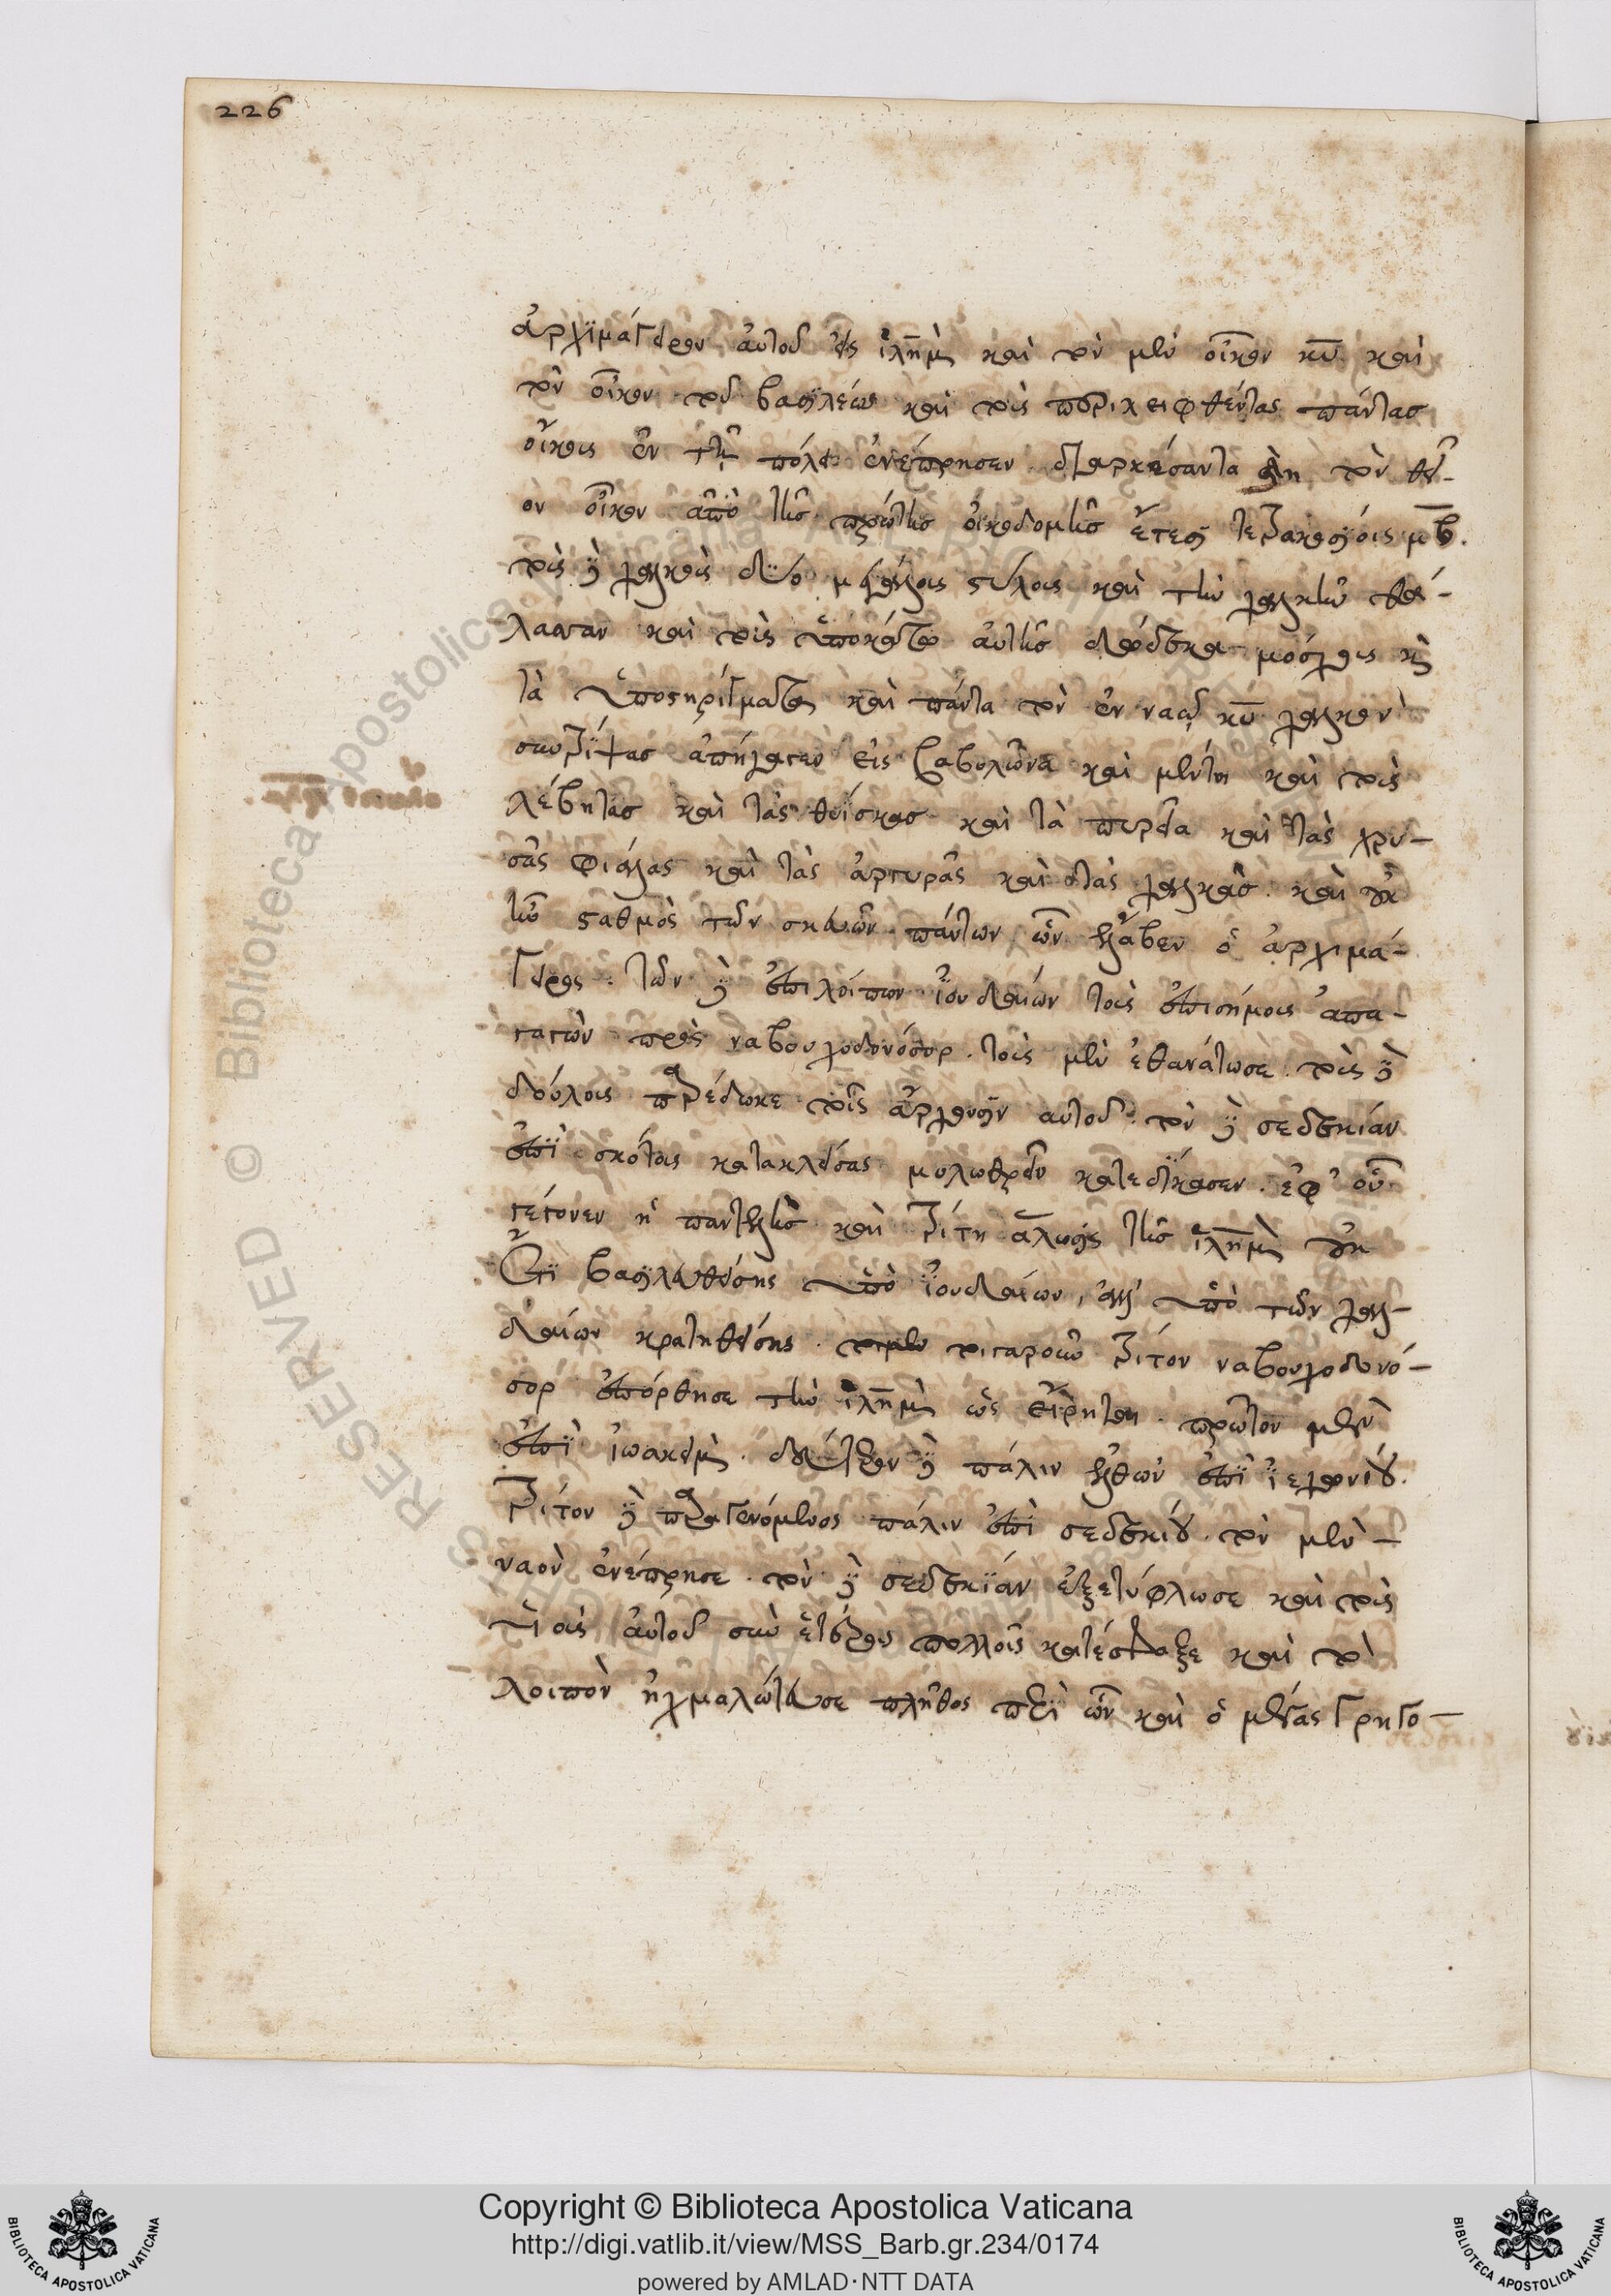 226
ἀρχϊμάγειρον αὐτοῦ εἰς ἱλῆμ καὶ τὸν μὲν οἶκον κῡ καὶ
τὸν οἶκον τοῦ βασϊλέως καὶ τοὺς περιλειφθέντας πάντας
οἴκους ἐν τῇ πόλει ἐνέπρησεν διαρκέσαντα τὸν θεῖ-
ον οἶκον ἀπὸ τῆς πρώτης οἰκοδομῆς ἔτεσι τετρακοσίοις μβ.
τοὺς δὲ χαλκοῦς δύο μεγάλους στύλους καὶ τὴν χαλκῆν θά-
λασσαν καὶ τοὺς ὑποκάτω αὐτῆς δώδεκα μόσχους καὶ
τὰ ὑποστηρίγματα καὶ πάντα τὸν ἐν ναῷ κῡ χαλκὸν
συντρίψας ἀπήγαγεν εἰς βαβυλῶνα καὶ μέντοι καὶ τοὺς
λέβητας καὶ τὰς θυΐσκας καὶ τὰ πυρεῖα καὶ τὰς χρυ-
σᾶς φιάλας καὶ τὰς ἀργυρᾶς καὶ τὰς χαλκᾶς. καὶ οὐκ
ἦν σταθμὸς τῶν σκευῶν πάντων ὧν ἔλαβεν ὁ ἀρχιμά-
γειρος. τῶν δὲ ἐπιλοίπων ἰουδαίων τοὺς ἐπισήμους ἀπα-
γαγὼν πρὸς ναβουχοδονόσορ. τοὺς μὲν ἐθανάτωσε. τοὺς δὲ
δούλους παρέδωκε τοῖς ἄρχουσιν αὐτοῦ. τὸν δὲ σεδεκίαν
ἐπὶ σκότους κατακλείσας μυλωθρεῖν κατεδίκασεν. ἐφ' οὗ
γέγονεν ἡ παντελὴς καὶ τρίτη ἅλωσις τῆς ἱλῆμ οὐκ
ἔτι βασϊλευθείσης ὑπὸ ἰουδαίων, ἀλλ' ὑπὸ τῶν χαλ-
δαίων κρατηθείσης. τοιγαροῦν τρίτον ναβουχοδονό-
σορ ἐπόρθησε τὴν ἱλῆμ ὡς εἴρηται. πρῶτον μὲν
ἐπὶ ἰωακεὶμ. δεύτερον δὲ πάλιν ἐλθὼν ἐπὶ ἰεχονίου.
τρίτον δὲ παραγενόμενος πάλιν ἐπὶ σεδεκίου. τὸν μὲν
ναὸν ἐνέπρησε. τὸν δὲ σεδεκίαν ἐξετύφλωσε καὶ τοὺς
υἱοὺς αὐτοῦ σὺν ἑτέροις πολλοῖς κατέσφαξε καὶ τὸ
λοιπὸν ᾐχμαλώτευσε πλῆθος περὶ ὧν καὶ ὁ μέγας Γρηγο-
Copyright © Biblioteca Apostolica Vaticana
http://digi.vatlib.it/view/MSS_Barb.gr.234/0174
powered by AMLAD·NTT DATA